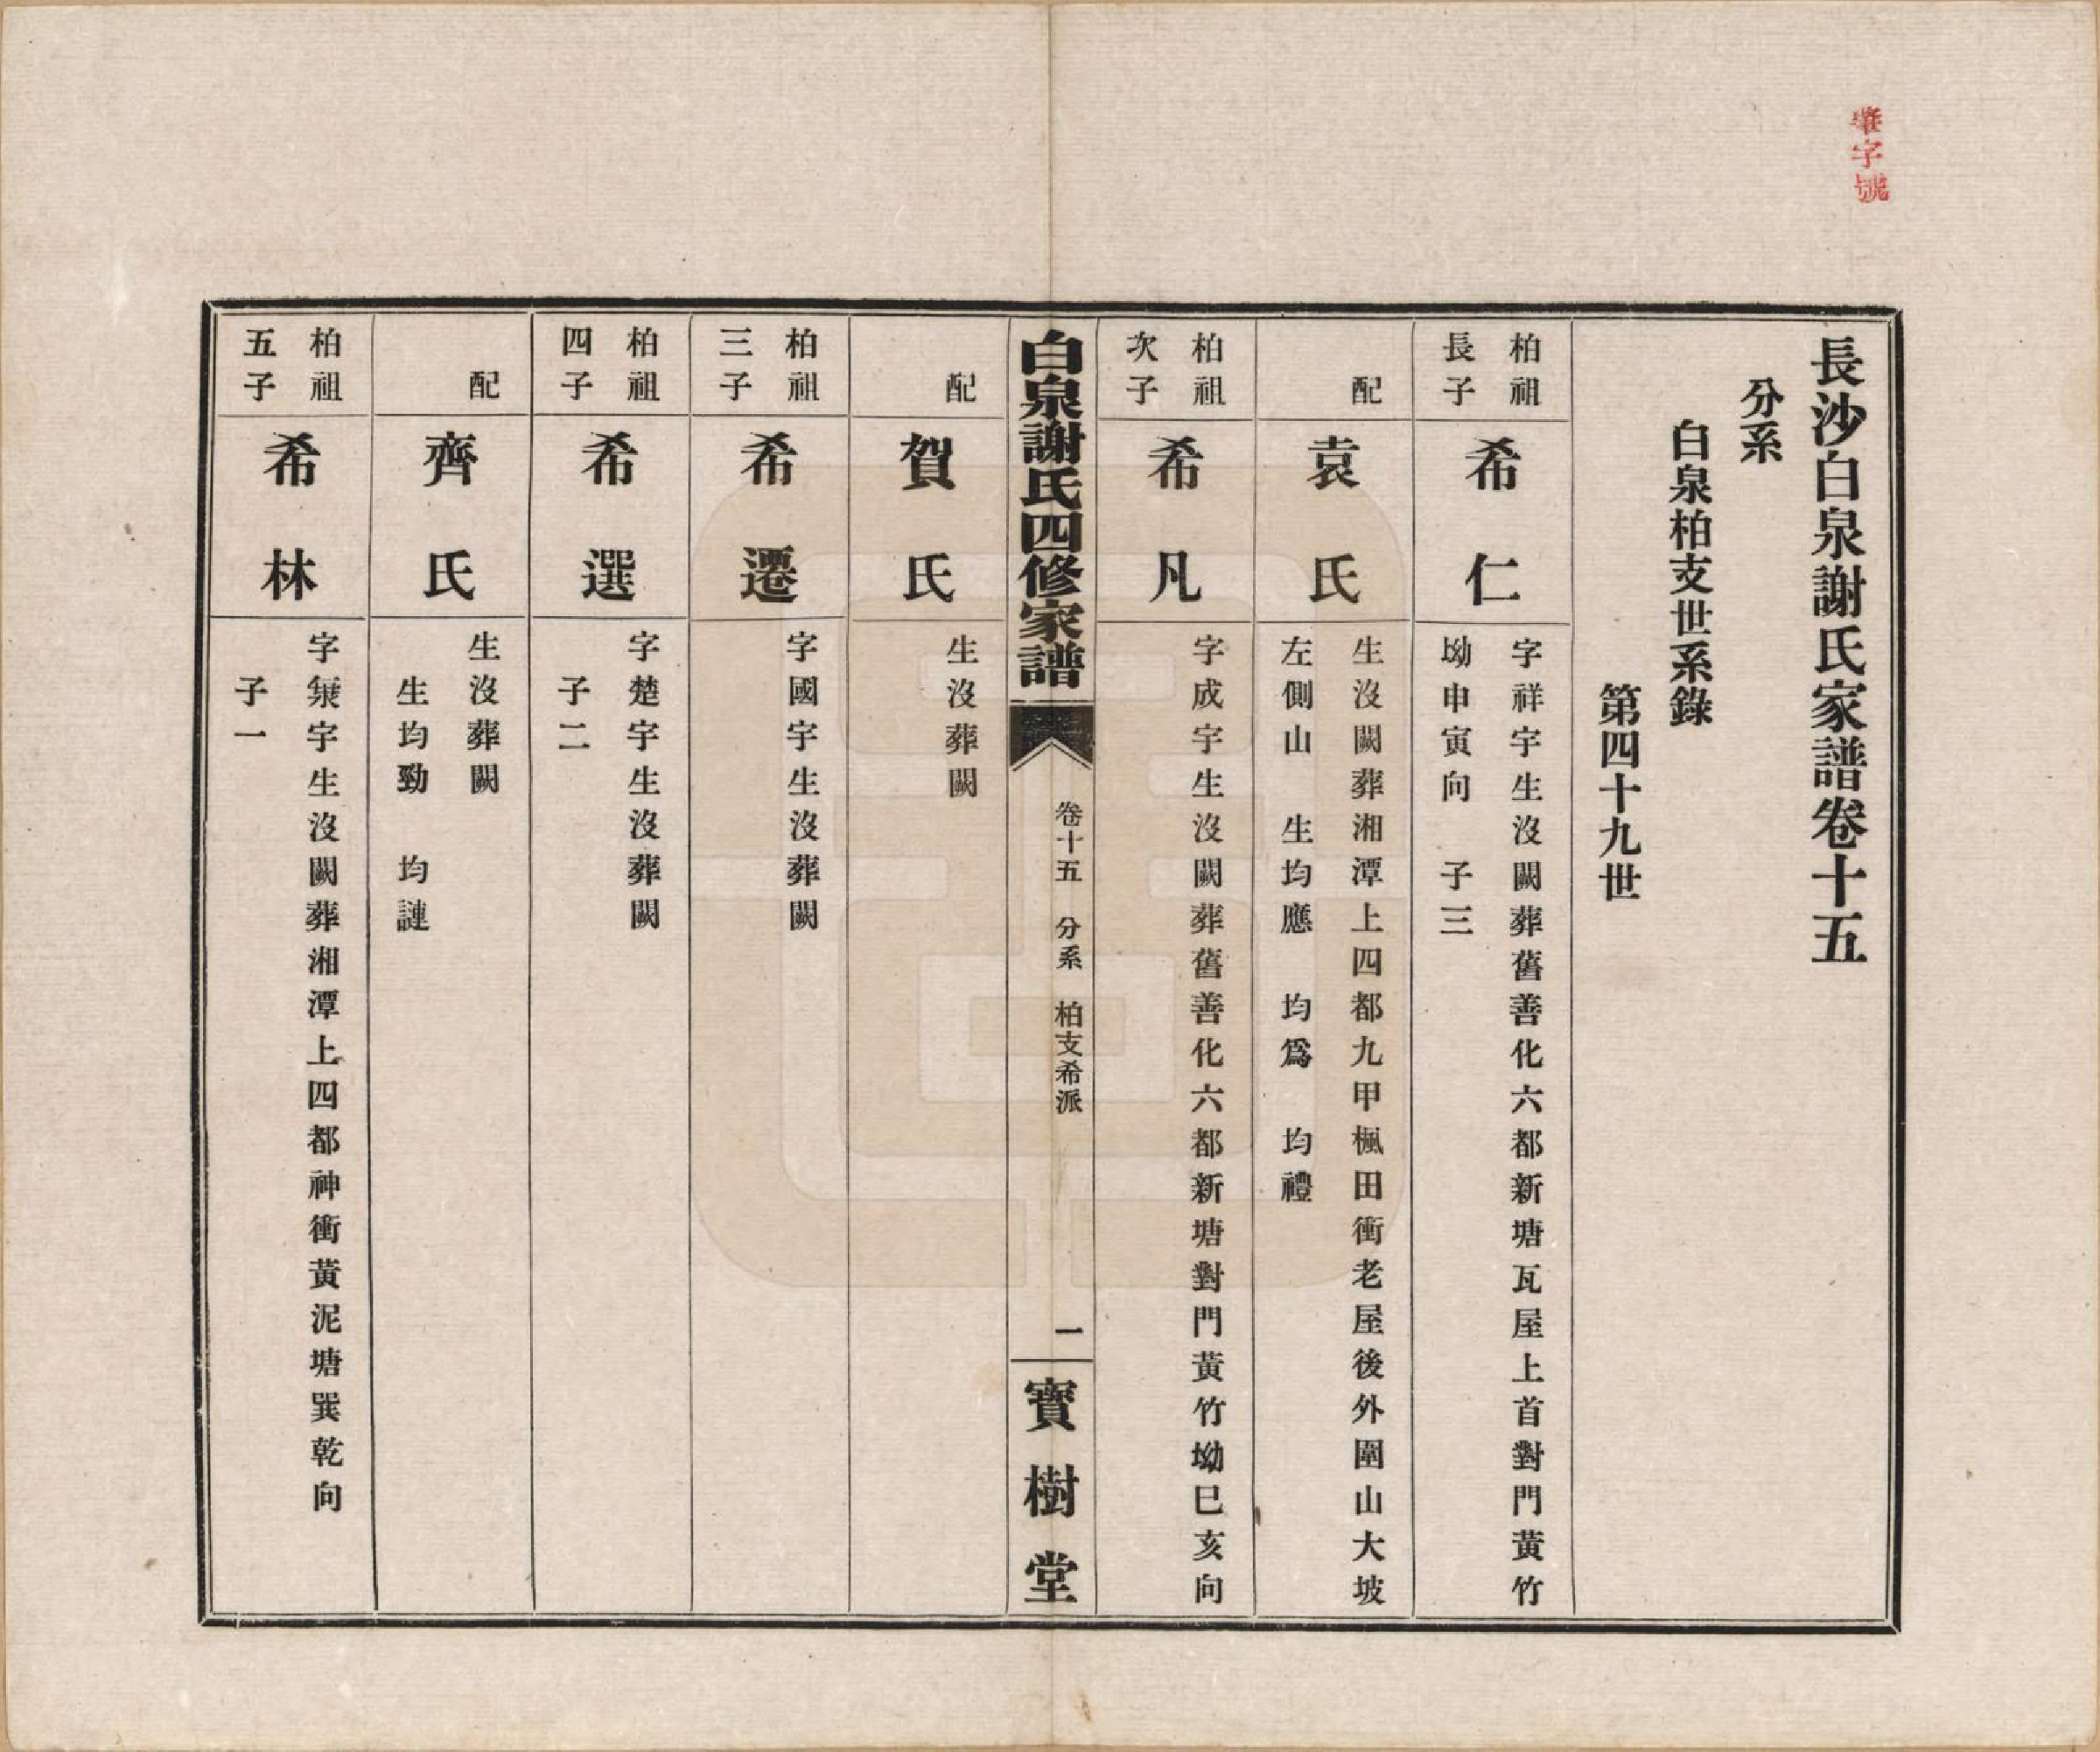 肇字號
長沙白泉謝氏家譜卷十五
分系
白泉柏支世系錄
第四十九世
柏祖
長子
希仁
字祥宇生沒闕葬舊善化六都新塘瓦屋上首對門黃竹
坳申寅向　子三
配
袁氏
生沒闕葬湘潭上四都九甲楓田衝老屋後外圍山大坡
左側山　生均應　均爲　均禮
柏祖
次子
希凡
字成宇生沒闕葬舊善化六都新塘對門黃竹坳巳亥向
配
賀氏
生沒葬闕
白泉謝氏四修家譜
卷十五　分系　柏支希派
一
寶樹堂
柏祖
三子
希遷
字國宇生沒葬闕
柏祖
四子
希選
字楚宇生沒葬闕
子二
配
齊氏
生沒葬闕
生均勁　均謰
柏祖
五子
希林
字宇生沒闕葬湘潭上四都神衝黃泥塘巽乾向
子一